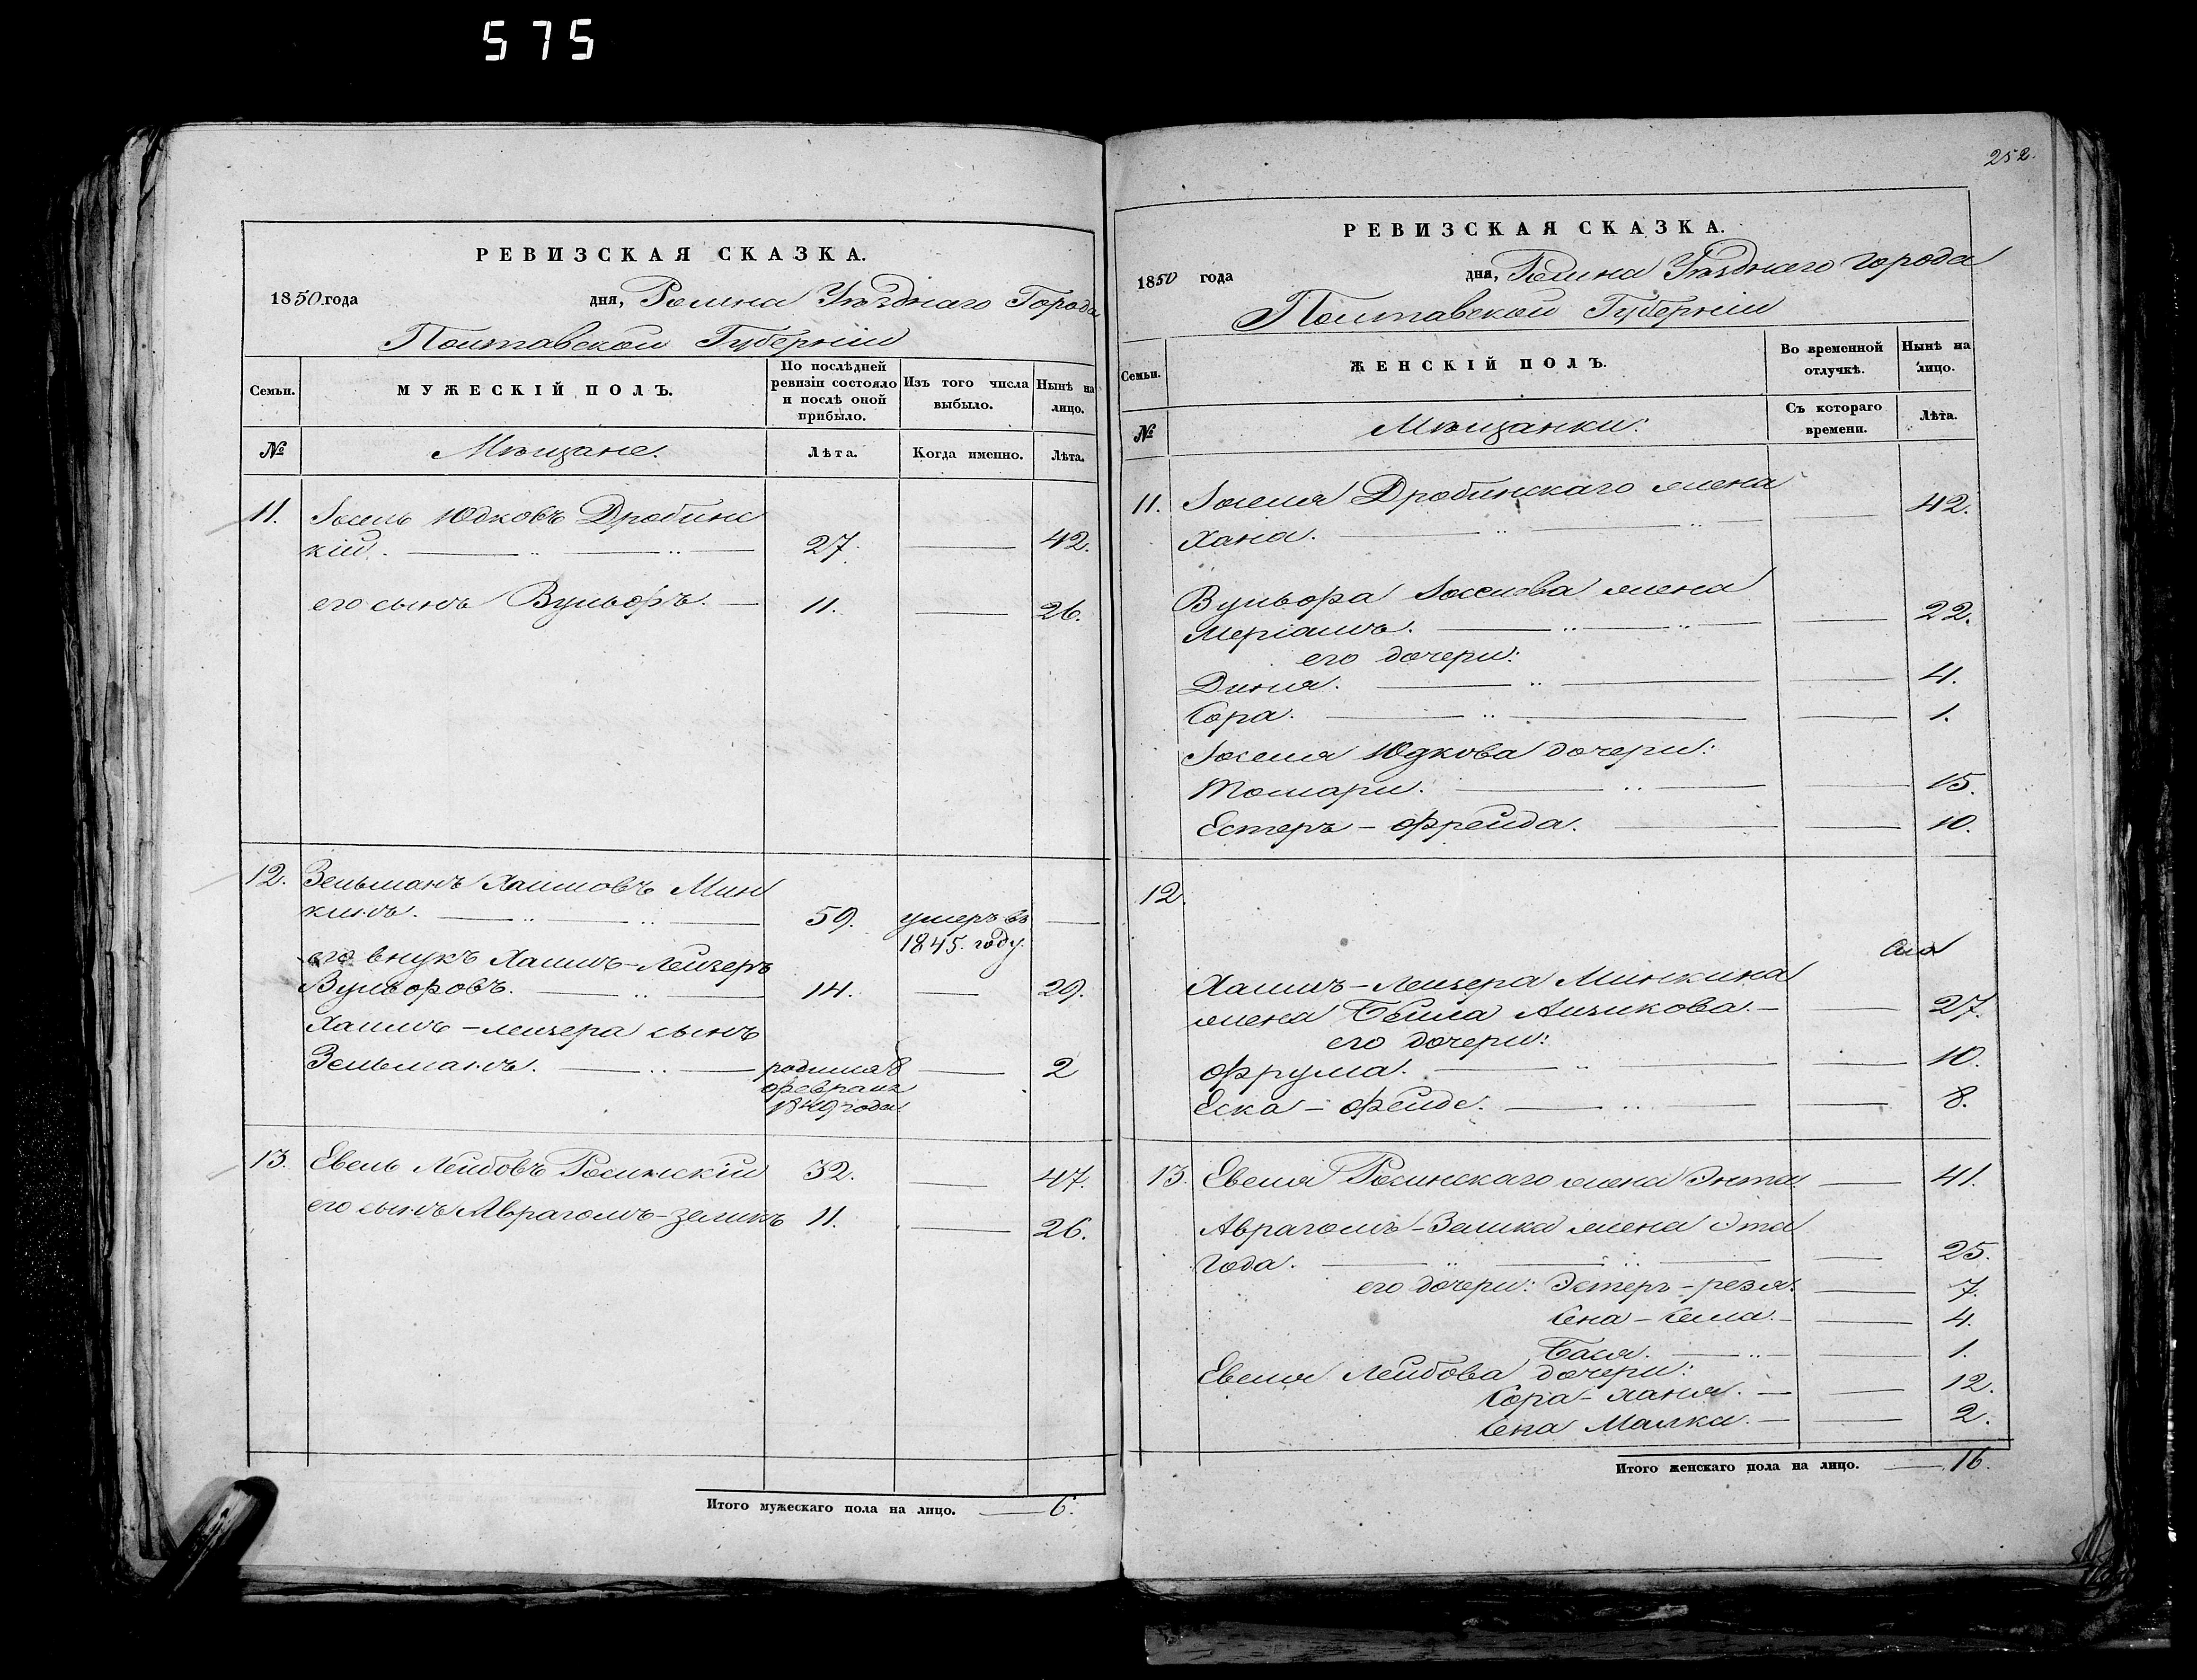 575
РЕВИЗСКАЯ СКАЗКА.
1850.года дня, Ромна Уѣзднаго Города
Полтавской Губерніи
Семьи.
МУЖЕСКІЙ ПОЛЪ.
По послѣдней ревизіи состояло и послѣ оной прибыло.
Изъ того числа выбыло.
Нынѣ на лицо.
№
Мѣщане.
Лѣта.
Когда именно.
Лѣта.
11. Іосель Юдковъ Дробинс
кій. 27. 42.
его сынъ Вульфъ. 11. 26.
12. Зельманъ Хаимовъ Мин
кинъ. 59. умеръ въ
1845. году.
его внукъ Хаимъ-Лейзеръ
Вульфовъ. 14. 29.
Хаимъ-лейзера сынъ
Зельманъ. родился 8 2
февраля
1849 года.
13. Евель Лейбовъ Роминскій 32. 47.
его сынъ Аврагомъ-зеликъ 11. 26.
Итого мужескаго пола на лицо. 6.
252.
РЕВИЗСКАЯ СКАЗКА.
1850 года дня, Ромна Уѣзднаго города
Полтавской Губерніи
Семьи.
ЖЕНСКІЙ ПОЛЪ.
Во временной отлучкѣ.
Нынѣ на лицо.
№
Мѣщанки:
Съ котораго времени.
Лѣта.
11. Іоселя Дробинскаго жена
Хана. 42.
Вульфа Іоселова жена
Меріамъ. 22.
его дочери:
Диня. 4.
Сора. 1.
Іоселя Юдкова дочери:
Томари. 15.
Естеръ-Фрейда. 10.
12.
Хаимъ-Лейзера Минкина
жена Бейла Аизикова. 27.
его дочери:
Фрума. 10.
Еска-Фейде. 8.
13. Евеля Роминскаго жена Энта. 41.
Аврагомъ-Зелика жена Эта
Года. 25.
его дочери: Эстеръ-резя. 7.
Сена-Сема. 4.
Бася. 1.
Евеля Лейбова дочери:
Сора-ханя. 12.
Сена Малка. 2.
Итого женскаго пола на лицо. 16.